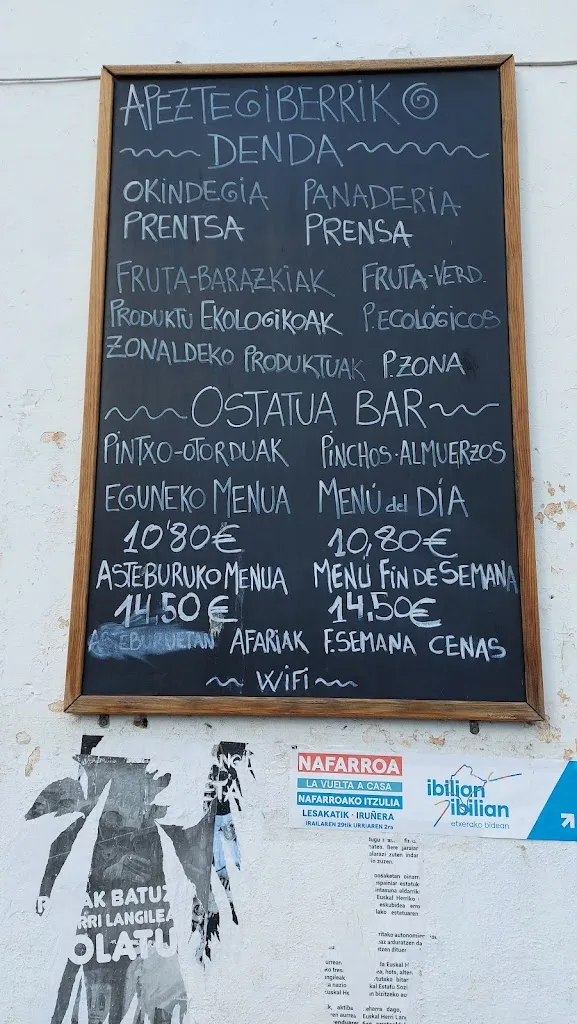 APEZTEGIBERRIK
DENDA
OKINDEGIA PANADERIA
PRENTSA PRENSA
FRUTA-BARAZKIAK FRUTA-VERD.
PRODUKTU EKOLOGIKOAK P.ECOLÓGICOS
ZONALDEKO PRODUKTUAK P.ZONA
OSTATUA BAR
PINTXO-OTORDUAK PINCHOS·ALMUERZOS
EGUNEKO MENUA MENÚ del DÍA
10'80€ 10,80€
ASTEBURUKO MENUA MENU FIN DE SEMANA
14,50€ 14,50€
ASTEBURUETAN AFARIAK F.SEMANA CENAS
WIFI
NAFARROA
LA VUELTA A CASA
NAFARROAKO ITZULIA
LESAKATIK · IRUÑERA
IRAILAREN 29tik URRIAREN 2ra
ibilian
ibilian
etxerako bidean
AK BATUZ
RRI LANGILEA
OLATU